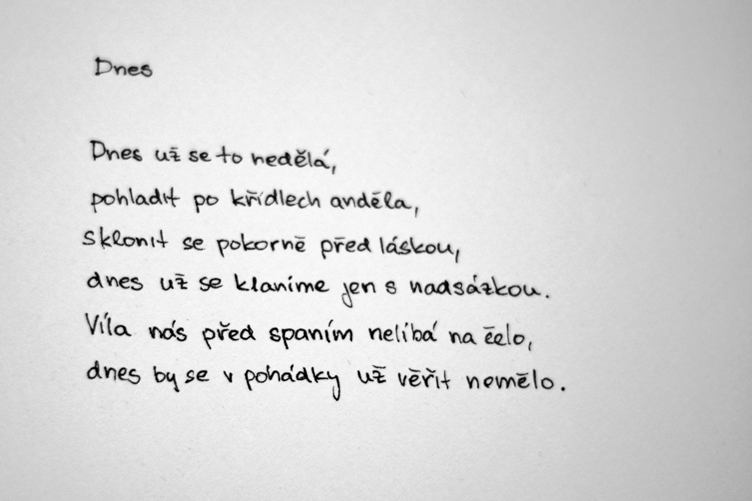 Dnes
Dnes už se to nedělá,
pohladit po křídlech anděla,
sklonit se pokorně před láskou,
dnes už se klaníme jen s nadsázkou.
Víla nás před spaním nelíbá na čelo,
dnes by se v pohádky už věřit nemělo.